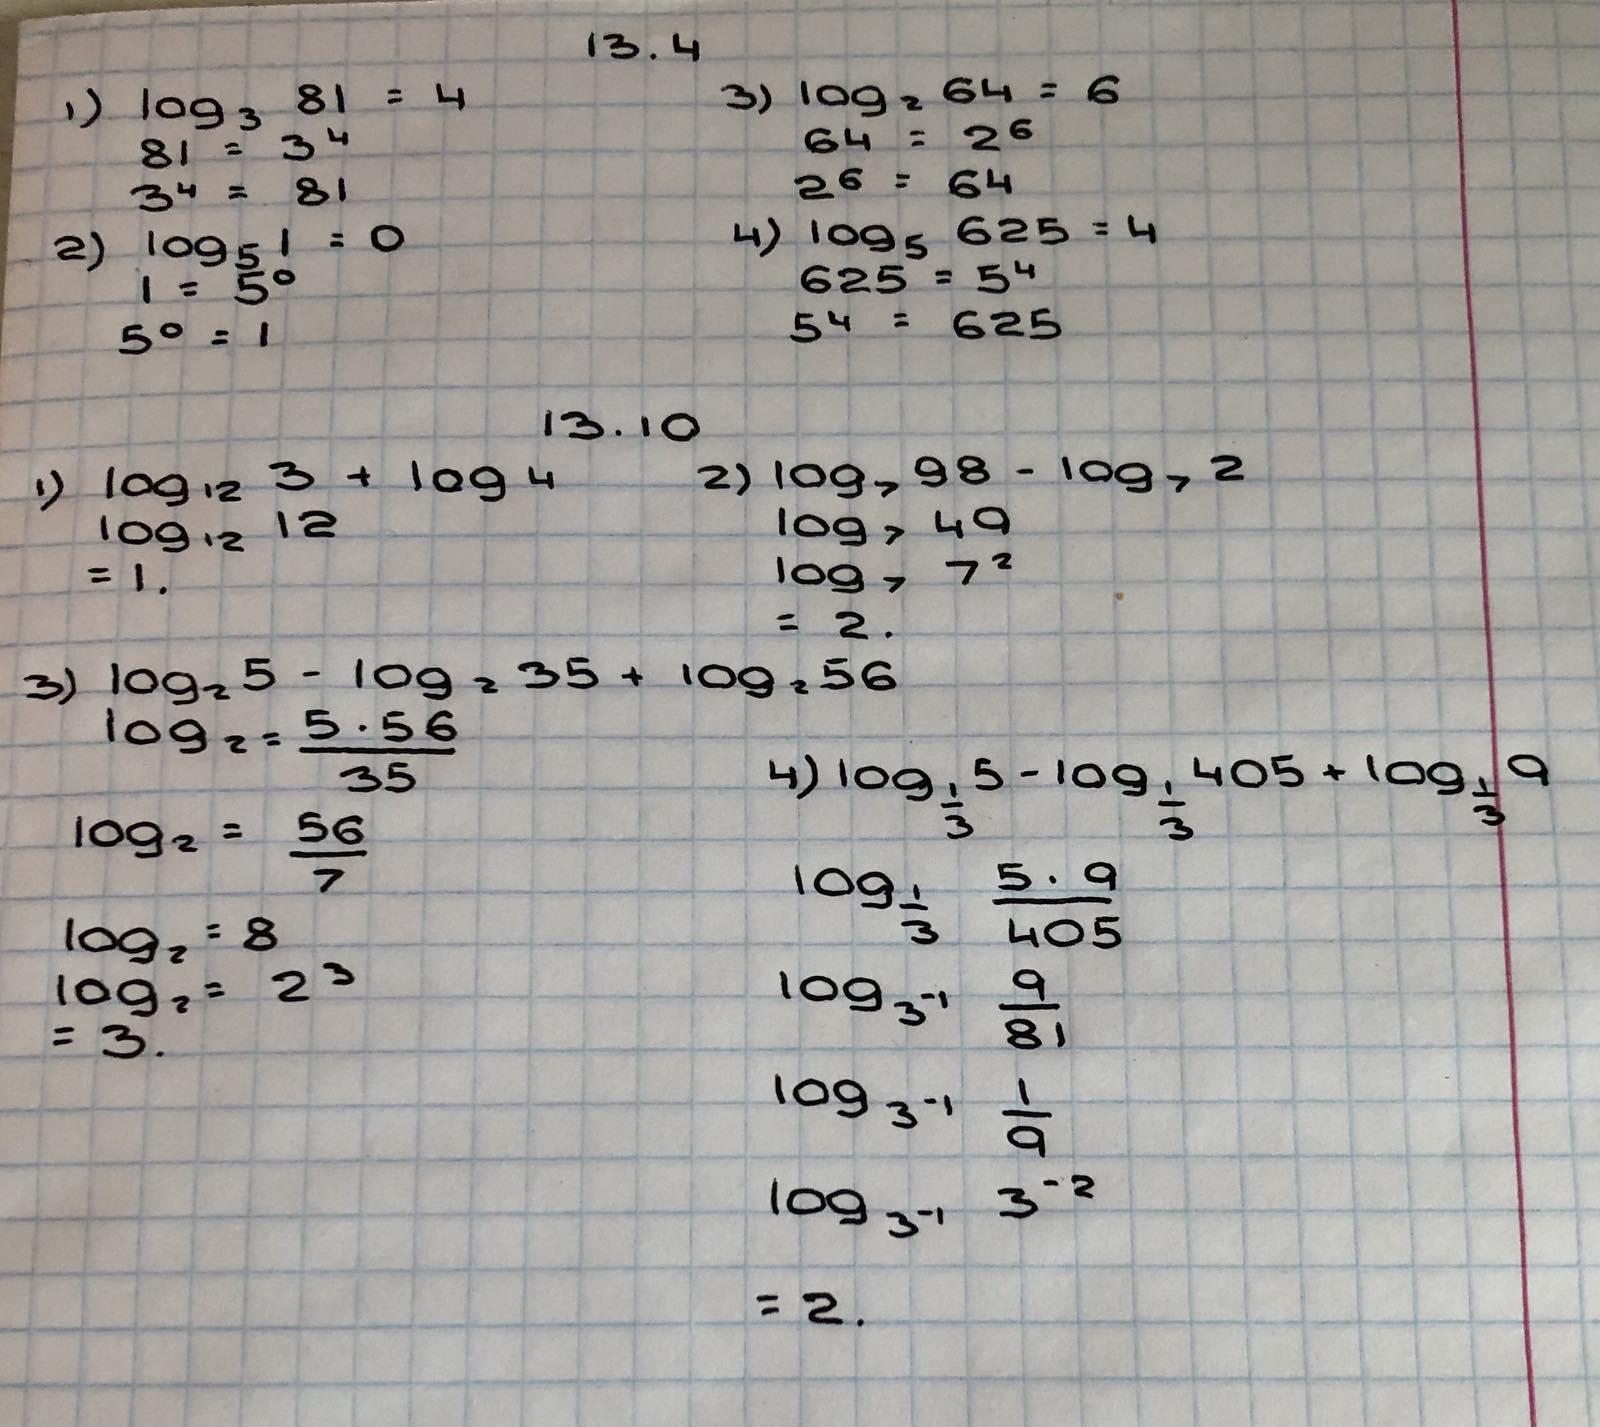 13.4
1) log₃ 81 = 4
81 = 3⁴
3⁴ = 81
2) log₅ 1 = 0
1 = 5⁰
5⁰ = 1
3) log₂ 64 = 6
64 = 2⁶
2⁶ = 64
4) log₅ 625 = 4
625 = 5⁴
5⁴ = 625
13.10
1) log₁₂ 3 + log 4
log₁₂ 12
= 1.
2) log₇ 98 - log₇ 2
log₇ 49
log₇ 7²
= 2.
3) log₂ 5 - log₂ 35 + log₂ 56
log₂ = 5·56/35
log₂ = 56/7
log₂ = 8
log₂ = 2³
= 3.
4) log_1/3 5 - log_1/3 405 + log_1/3 9
log_1/3 5·9/405
log₃⁻¹ 9/81
log₃⁻¹ 1/9
log₃⁻¹ 3⁻²
= 2.